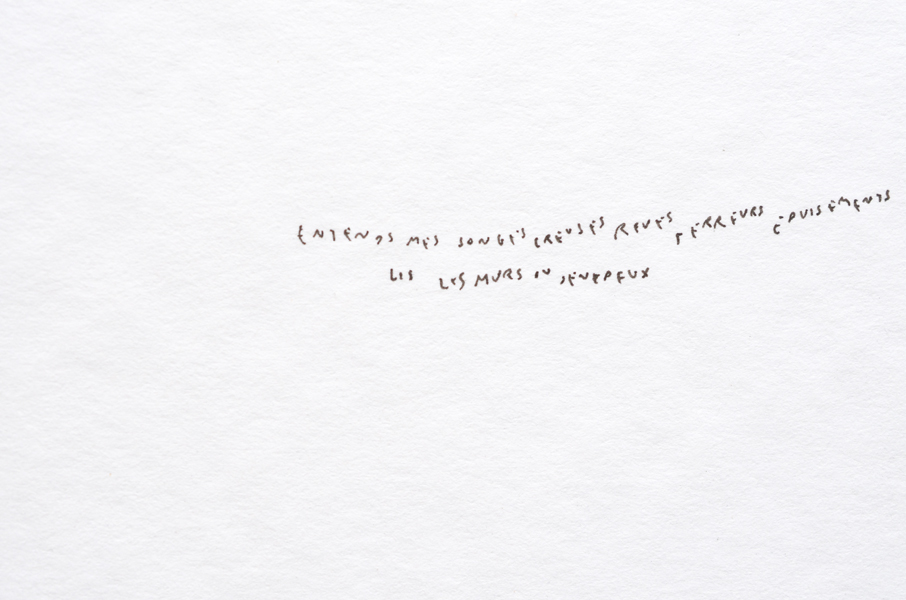 ENTENDS MES SONGES CREUSES REVES TERREURS ÉPUISEMENTS
LIS LES MURS OU JENEPEUX